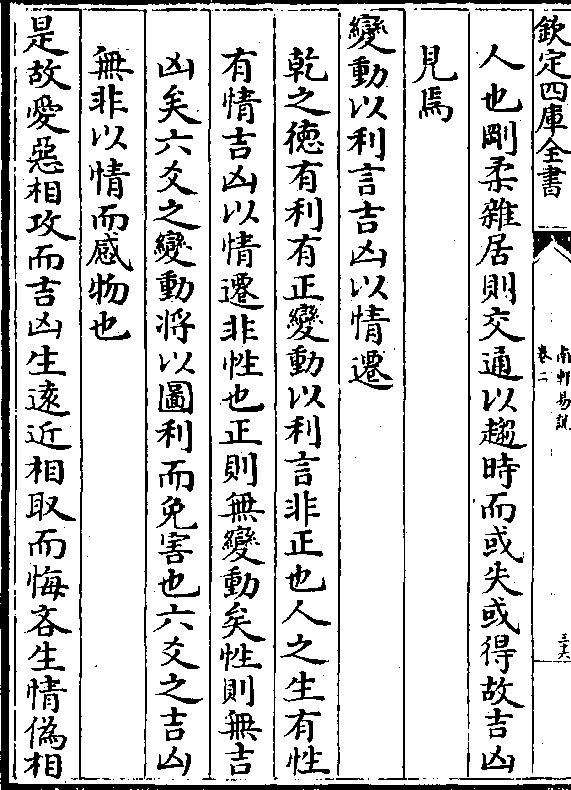 欽定四庫全書
南軒易說
卷二
三六
人也剛柔雜居則交通以趨時而或失或得故吉凶
見焉
變動以利言吉凶以情遷
乾之德有利有正變動以利言非正也人之生有性
有情吉凶以情遷非性也正則無變動矣性則無吉
凶矣六爻之變動將以圖利而免害也六爻之吉凶
無非以情而感物也
是故愛惡相攻而吉凶生遠近相取而悔吝生情偽相